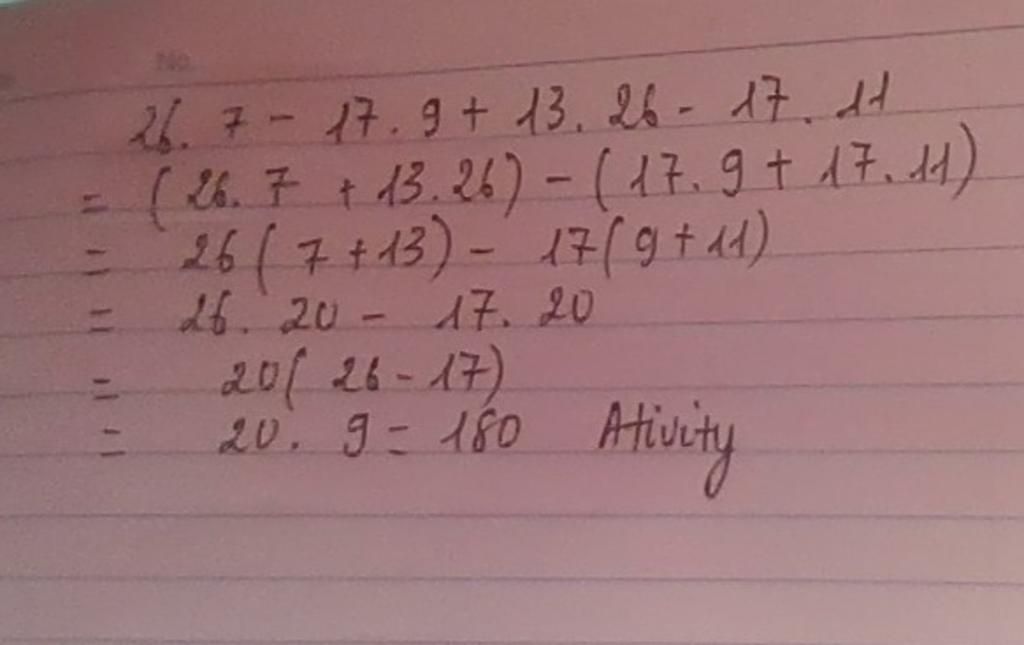 No.
26. 7 - 17. 9 + 13. 26 - 17. 11
= (26. 7 + 13. 26) - (17. 9 + 17. 11)
= 26 ( 7 + 13) - 17( 9 + 11)
= 26. 20 - 17. 20
= 20( 26 - 17)
= 20. 9 = 180 Ativity